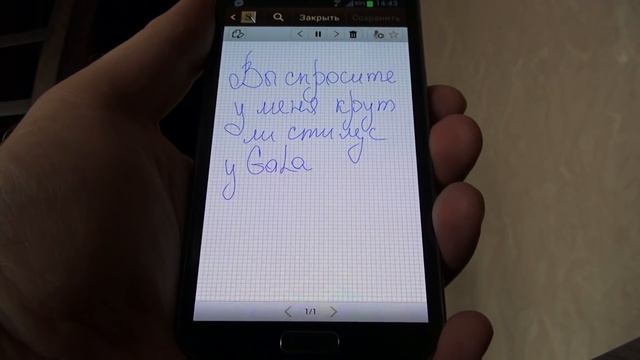 14:43
Закрыть Сохранить
Вы спросите
у меня крут
ли стилус
у GaLa
1/1